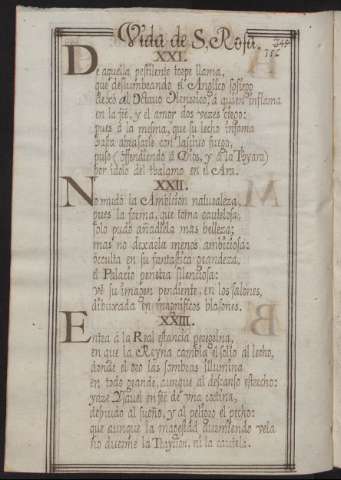 Vida de S. Rosa.
344
356
XXI.
De aquella pestilente torpe llama,
que deslumbrando el Anglico sosiego
dexò al Octavo Henrrico, à quien inflama
en la feè, y el amor dos vezes ciego:
pues à la mesma, que su lecho infama
hasta abrasarle con lascivo fuego,
puso (offendiendo à Dios, y à la Thyara)
por idolo del thalamo en el Ara.
XXII.
No mudò la Ambicion naturaleza,
pues la forma, que toma cautelosa,
solo pudo añadirla mas belleza;
mas no dexarla menos ambiciosa:
occulta en su fantastica grandeza,
el Palacio penetra silenciosa:
vè su imagen pendiente, en los salones,
dibuxada en magnificos blasones.
XXIII.
Entra à la Real estancia peregrina,
en que la Reyna cambia el solio al lecho,
donde el oro las sombras illumina
en todo grande, aunque al descanso estrecho:
yaze Ysabel en feè de una cortina,
desnudo al sueño, y al peligro el pecho:
que aunque la magestad durmiendo vela
no duerme la Traycion, ni la cautela.